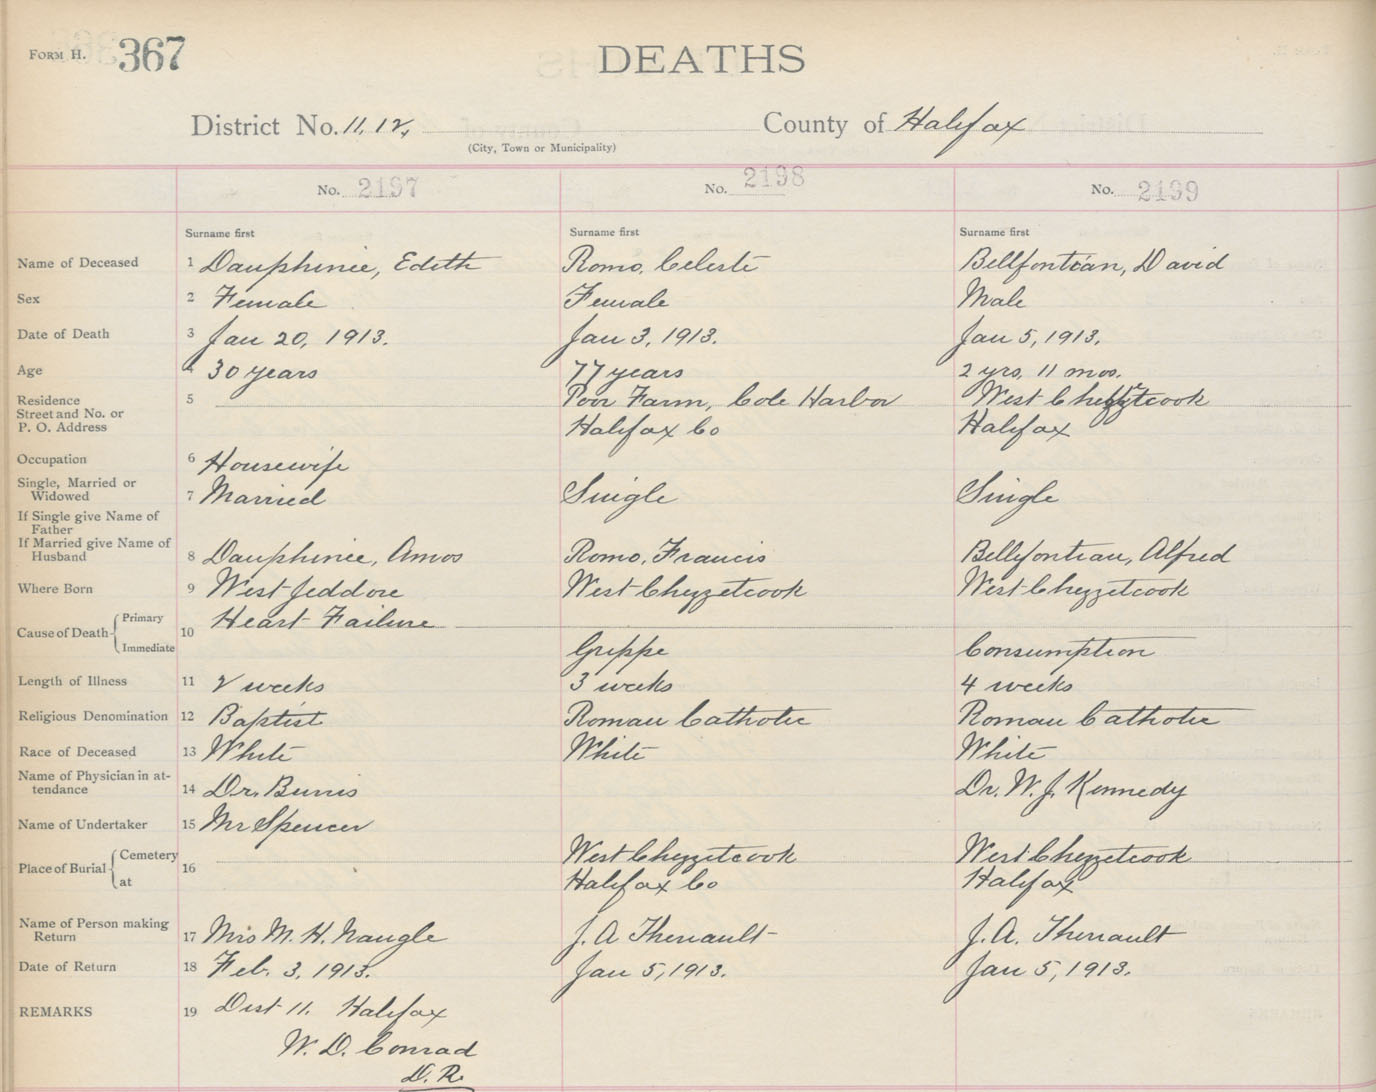 FORM H. 367
DEATHS
District No. 11, 12, County of Halifax
(City, Town or Municipality)
No. 2197 No. 2198 No. 2199
Surname first Surname first Surname first
Name of Deceased 1 Dauphinie, Edith Romo, Celeste Bellfontian, David
Sex 2 Female Female Male
Date of Death 3 Jan 20, 1913. Jan 3, 1913. Jan 5, 1913.
Age 4 30 years 77 years 2 yrs, 11 mos.
Residence 5 Poor Farm, Cole Harbor West Chezzetcook
Street and No. or
P. O. Address Halifax Co Halifax
Occupation 6 Housewife
Single, Married or
Widowed 7 Married Single Single
If Single give Name of
Father
If Married give Name of
Husband 8 Dauphinie, Amos Romo, Francis Bellfontian, Alfred
Where Born 9 West Jeddore West Chezzetcook West Chezzetcook
Cause of Death Primary 10 Heart Failure
Immediate Grippe Consumption
Length of Illness 11 2 weeks 3 weeks 4 weeks
Religious Denomination 12 Baptist Roman Catholic Roman Catholic
Race of Deceased 13 White White White
Name of Physician in at-
tendance 14 Dr. Dr. W. J. Kennedy
Name of Undertaker 15 Mr Spencer
Place of Burial Cemetery 16 West Chezzetcook West Chezzetcook
at Halifax Co Halifax
Name of Person making
Return 17 Mrs M. H. Naugle J. A Theriault J. A. Theriault
Date of Return 18 Feb. 3, 1913. Jan 5, 1913. Jan 5, 1913.
REMARKS 19 Dist 11. Halifax
W. D. Conrad
D. R.